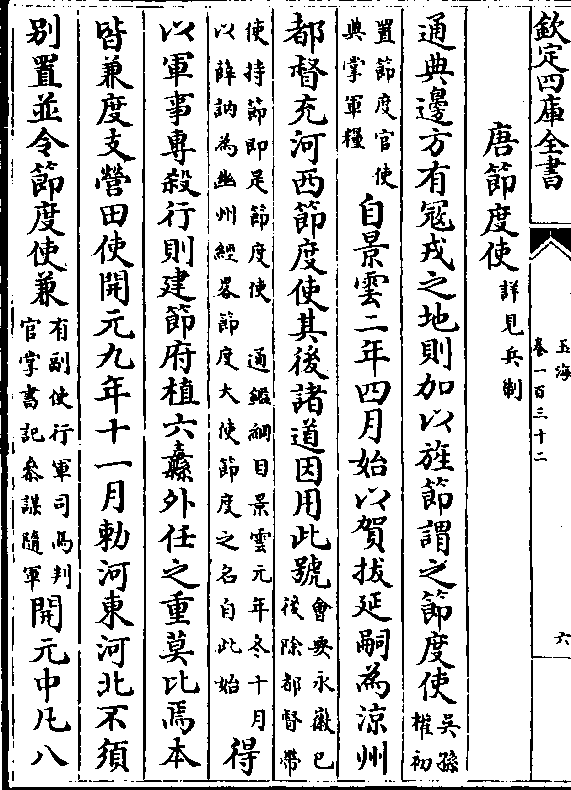 欽定四庫全書
玉海
卷一百三十二
六
唐節度使詳見兵制
通典邊方有冦戎之地則加以旌節謂之節度使吳孫權初
置節度官使典掌軍糧自景雲二年四月始以賀拔延嗣為涼州
都督充河西節度使其後諸道因用此號會要永徽已後除都督帶
使持節即是節度使通鑑綱目景雲元年冬十月以薛訥為幽州經畧節度大使節度之名自此始得
以軍事專殺行則建節府植六纛外任之重莫比焉本
皆兼度支營田使開元九年十一月勅河東河北不須
别置並令節度使兼有副使行軍司馬判官掌書記參謀隨軍開元中凡八